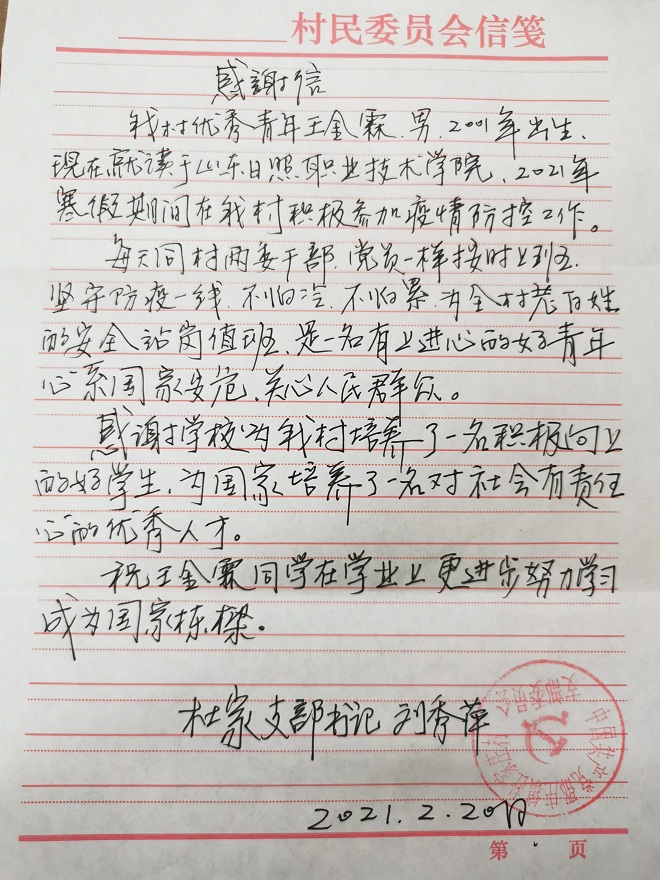 村民委员会信笺
感謝信
我村优秀青年王金霖、男、2001年出生、
现在就读于山东日照职业技术学院、2021年
寒假期间在我村积极参加疫情防控工作。
每天同村两委干部、党员一样按时上班、
坚守防疫一线、不怕冷、不怕累、为全村老百姓
的安全站岗值班、是一名有上进心的好青年
心系国家安危、关心人民群众。
感谢学校为我村培养了一名积极向上
的好学生、为国家培养了一名对社会有责任
心的优秀人才。
祝王金霖同学在学业上更进步努力学习
成为国家栋樑。
杜家支部书记 刘秀萍
中国共产党
支部委员会
2021.2.20日
第 页